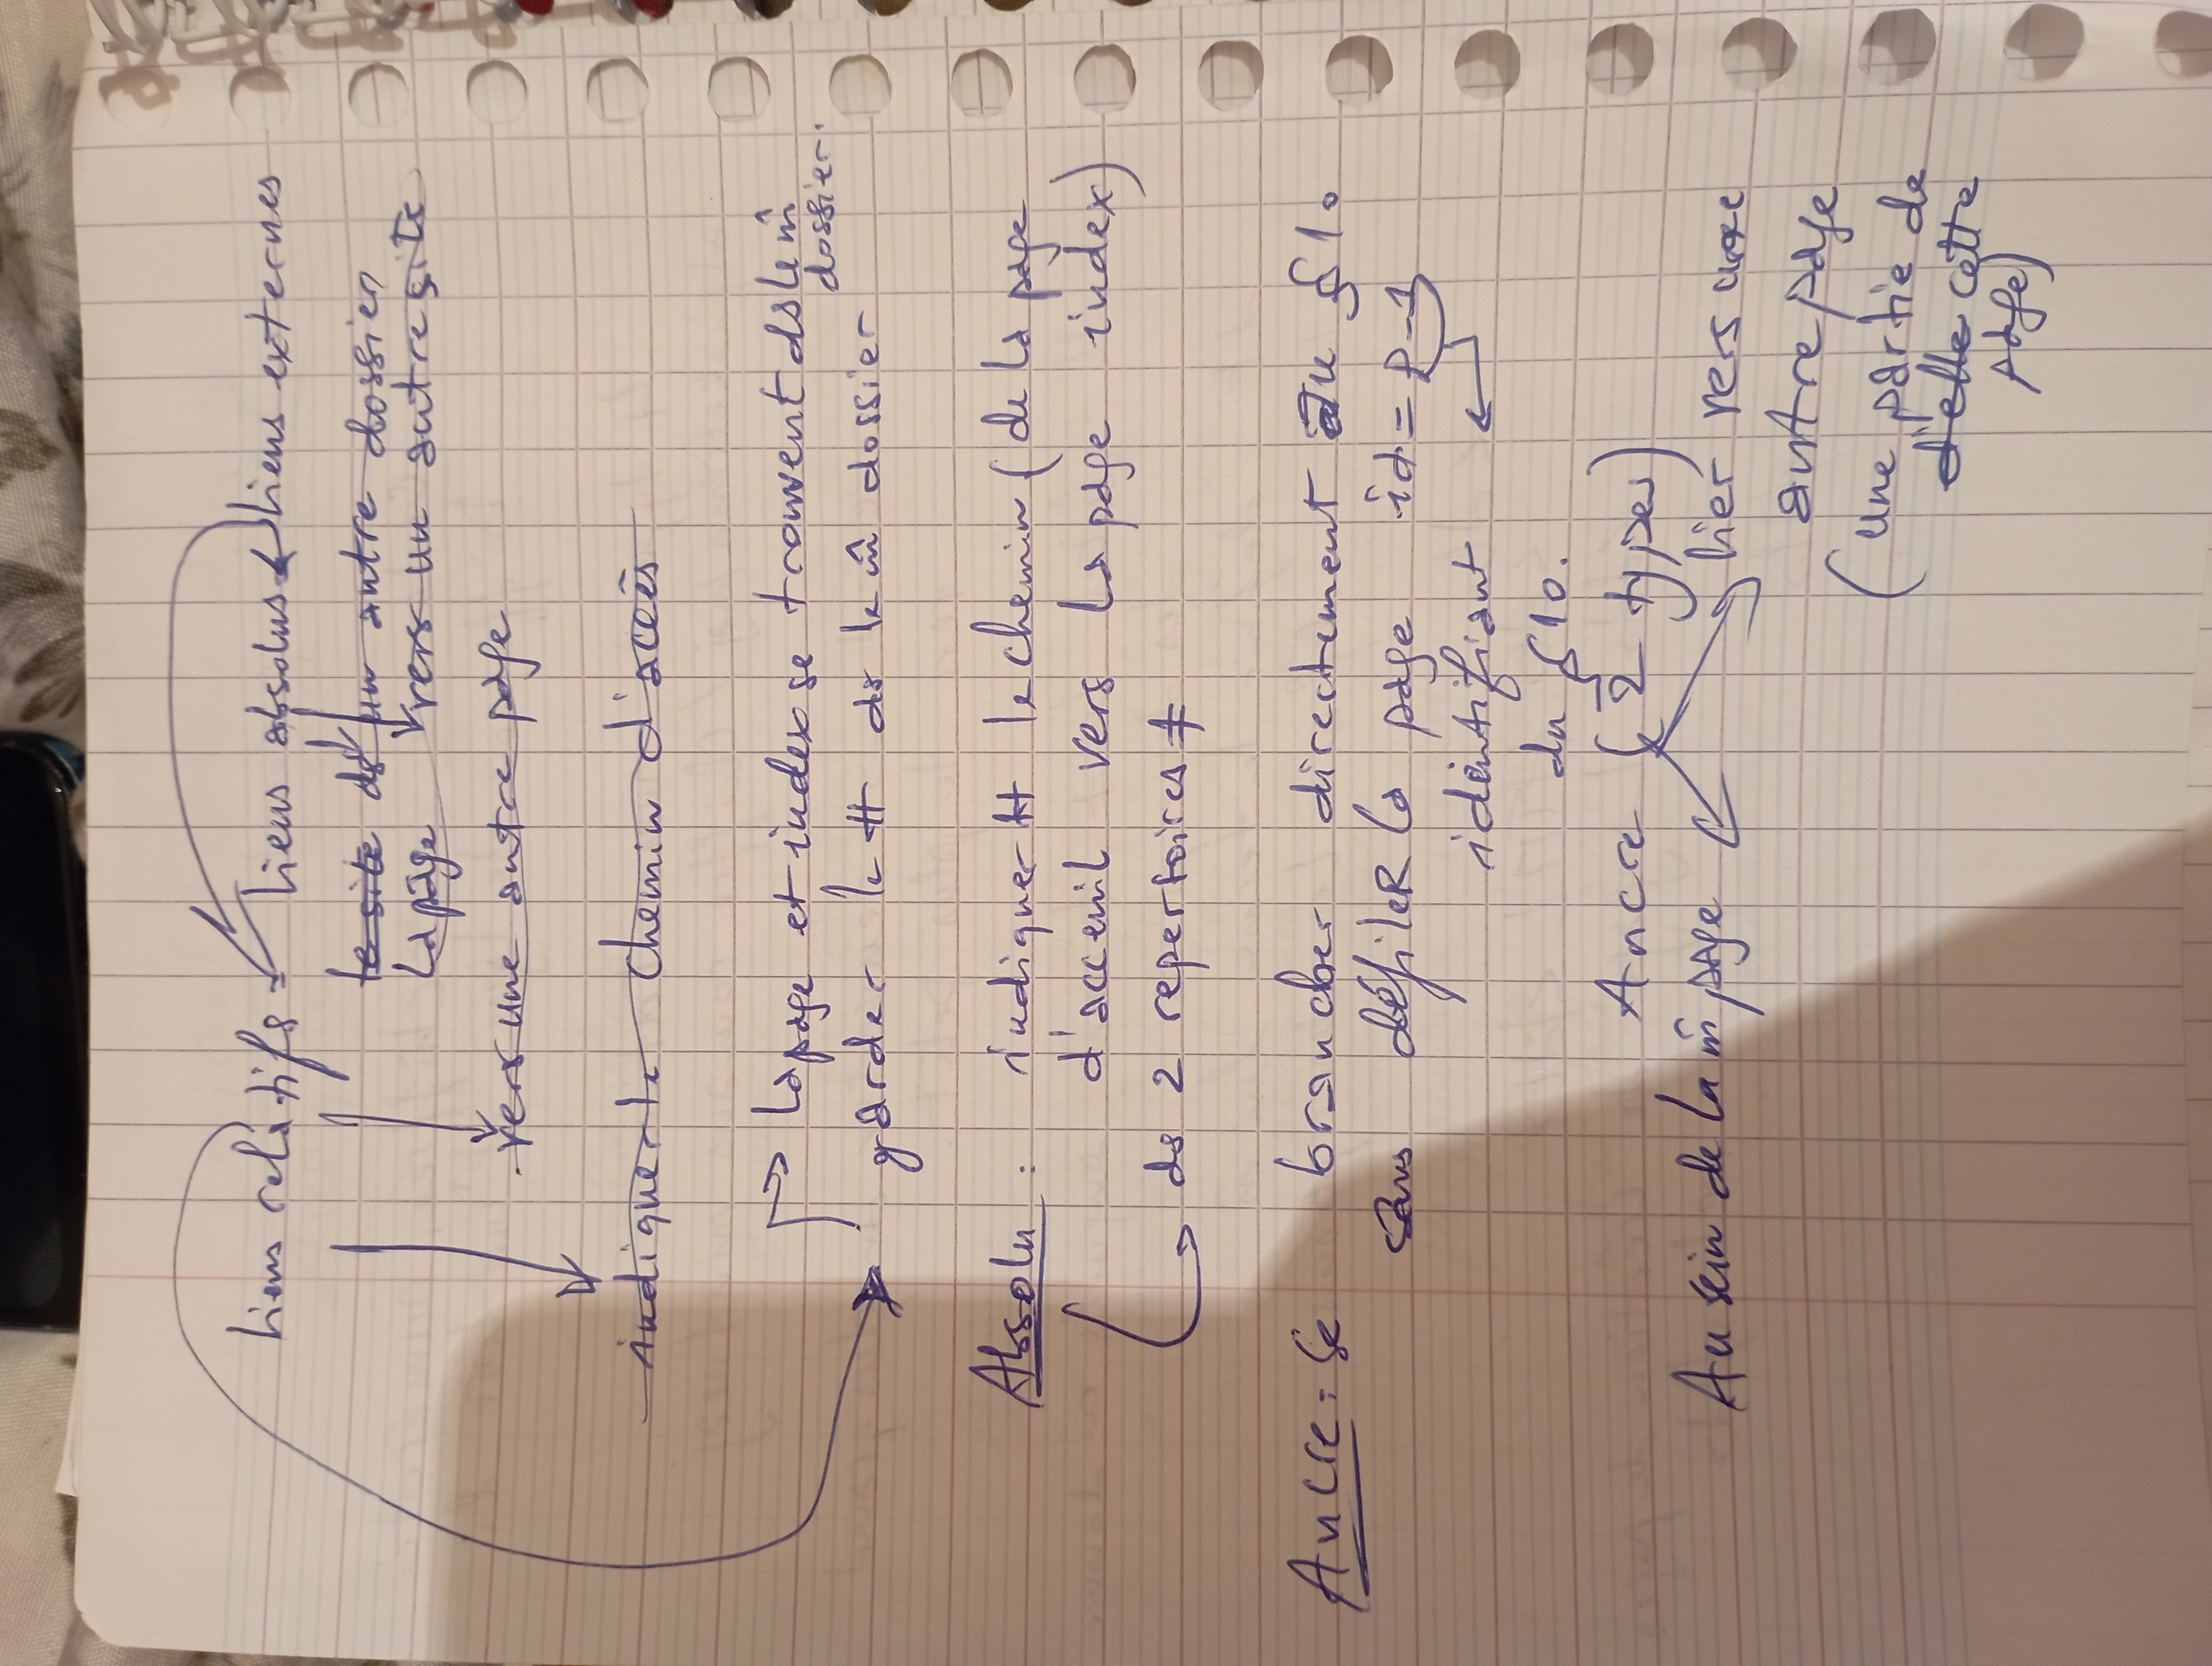 liens relatifs ≠ liens absolus ≠ liens externes
le site ds un autre dossier
La page vers un autre site
vers une autre page
indiquer le chemin d'accès
→ la page et index se trouvent ds le m̂
dossier.
garder le # ds le m̂ dossier
Absolu : indiquer # le chemin (de la page
d'accueil vers la page index)
→ ds 2 repertoires ≠
Ancre : se brancher directement au § 10
sans défileR la page id = p-1
identifiant
du § 10.
Ancre (2 types)
Au sein de la m̂ page
lier vers une
autre page
(une partie de
d'elle cette
page)